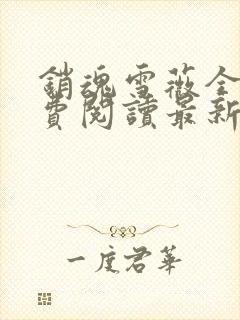 銷魂雪薇全
費閱讀最新
一度君華